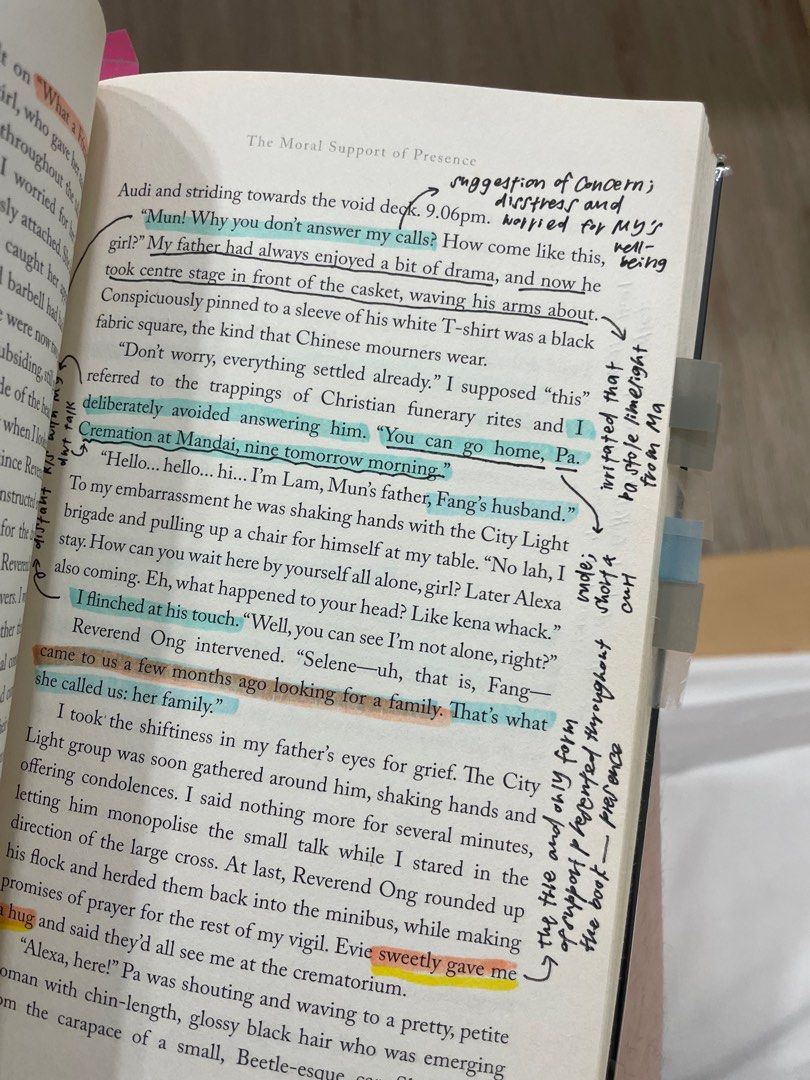 t on "What a F
irl, who gave he
throughout the
I worried for
sly attached. S
caught her
l barbell had
e were now
ubsiding, still
de of the b
when I loo
ince Rever
nstructed
for the
Rever
vers. I
ther
al co
The Moral Support of Presence
Audi and striding towards the void deck. 9.06pm.
"Mun! Why you don't answer my calls? How come like this,
girl?" My father had always enjoyed a bit of drama, and now he
took centre stage in front of the casket, waving his arms about.
Conspicuously pinned to a sleeve of his white T-shirt was a black
fabric square, the kind that Chinese mourners wear.
"Don't worry, everything settled already." I supposed "this"
referred to the trappings of Christian funerary rites and I
deliberately avoided answering him. "You can go home, Pa.
Cremation at Mandai, nine tomorrow morning."
"Hello... hello... hi... I'm Lam, Mun's father, Fang's husband."
To my embarrassment he was shaking hands with the City Light
brigade and pulling up a chair for himself at my table. "No lah, I
stay. How can you wait here by yourself all alone, girl? Later Alexa
also coming. Eh, what happened to your head? Like kena whack."
I flinched at his touch. "Well, you can see I'm not alone, right?"
Reverend Ong intervened. "Selene—uh, that is, Fang—
came to us a few months ago looking for a family. That's what
she called us: her family."
I took the shiftiness in my father's eyes for grief. The City
Light group was soon gathered around him, shaking hands and
offering condolences. I said nothing more for several minutes,
letting him monopolise the small talk while I stared in the
direction of the large cross. At last, Reverend Ong rounded up
his flock and herded them back into the minibus, while making
promises of prayer for the rest of my vigil. Evie sweetly gave me
a hug and said they'd all see me at the crematorium.
"Alexa, here!" Pa was shouting and waving to a pretty, petite
oman with chin-length, glossy black hair who was emerging
om the carapace of a small, Beetle-esque
suggestion of concern;
disstress and
worried for My's
well-
being
irritated that
Pa stole limelight
from Ma
rude;
short &
curt
the true and only form
of support presented throughout
the book — presence
distant r/s with my
dwt talk